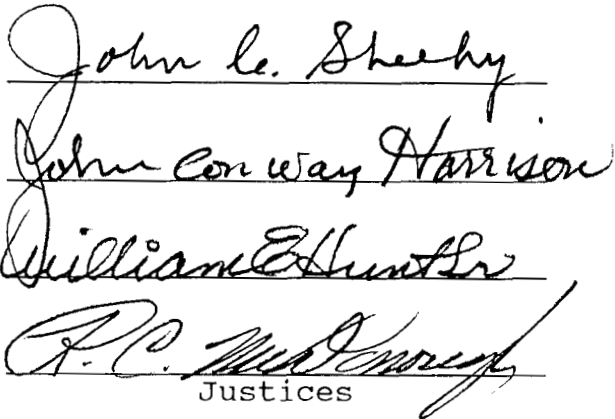 John C. Sheehy
John Conway Harrison
William E Hunt Sr
R. C. McDonough
Justices